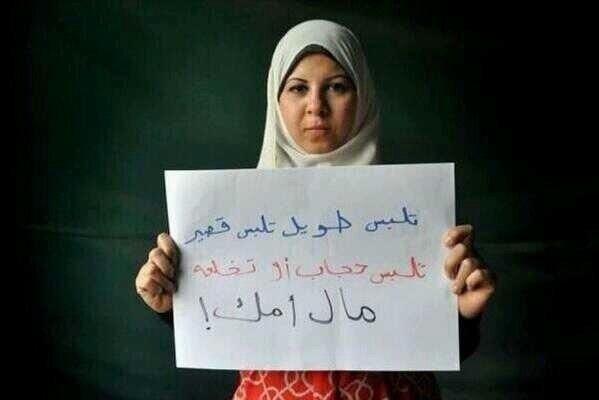 تلبس طويل تلبس قصير
تلبس حجاب أو تخلعه
مال أمك!